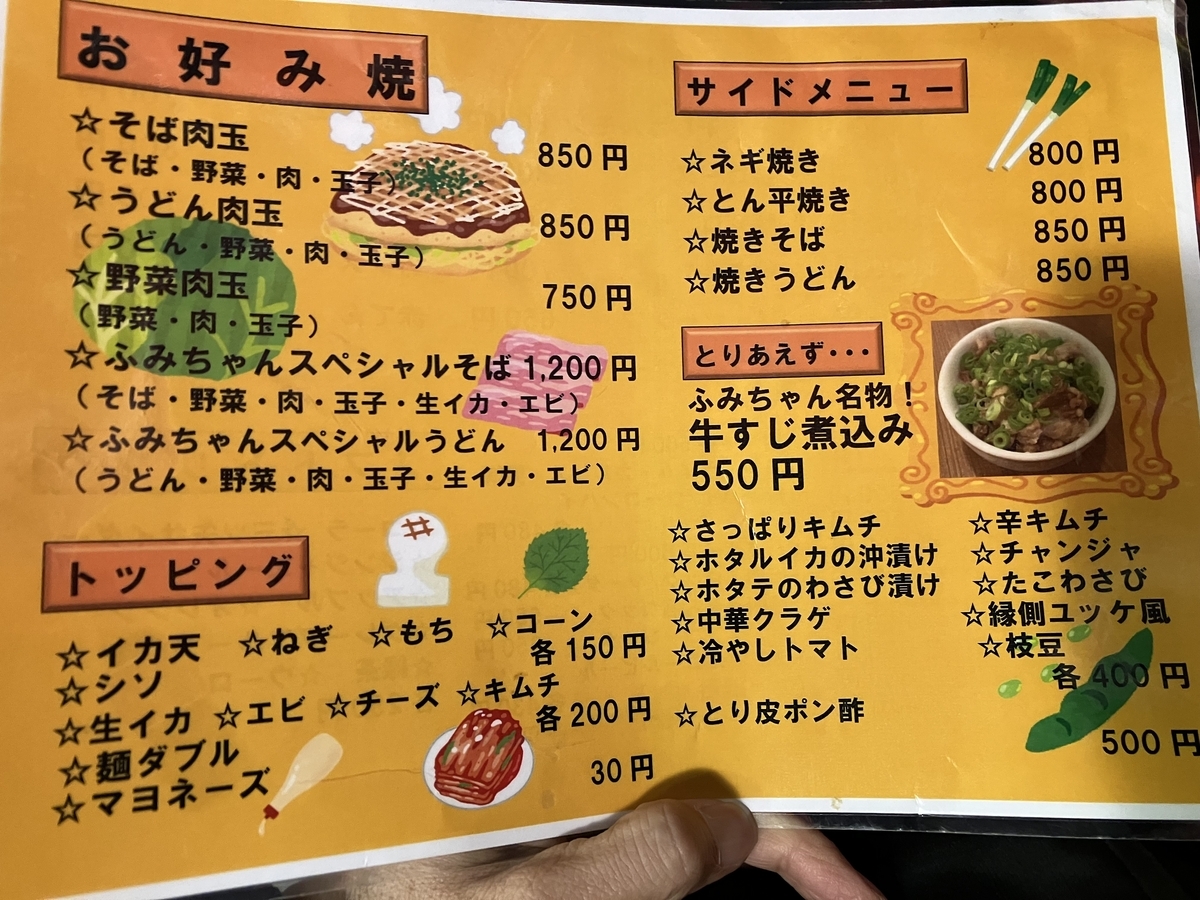 お好み焼
☆そば肉玉 850円
（そば・野菜・肉・玉子）
☆うどん肉玉 850円
（うどん・野菜・肉・玉子）
☆野菜肉玉 750円
（野菜・肉・玉子）
☆ふみちゃんスペシャルそば 1,200円
（そば・野菜・肉・玉子・生イカ・エビ）
☆ふみちゃんスペシャルうどん 1,200円
（うどん・野菜・肉・玉子・生イカ・エビ）
トッピング
☆イカ天 ☆ねぎ ☆もち ☆コーン
☆シソ 各150円
☆生イカ ☆エビ ☆チーズ ☆キムチ
☆麺ダブル 各200円
☆マヨネーズ 30円
サイドメニュー
☆ネギ焼き 800円
☆とん平焼き 800円
☆焼きそば 850円
☆焼きうどん 850円
とりあえず・・・
ふみちゃん名物！
牛すじ煮込み
550円
☆さっぱりキムチ ☆辛キムチ
☆ホタルイカの沖漬け ☆チャンジャ
☆ホタテのわさび漬け ☆たこわさび
☆中華クラゲ ☆縁側ユッケ風
☆冷やしトマト ☆枝豆
各400円
☆とり皮ポン酢 500円